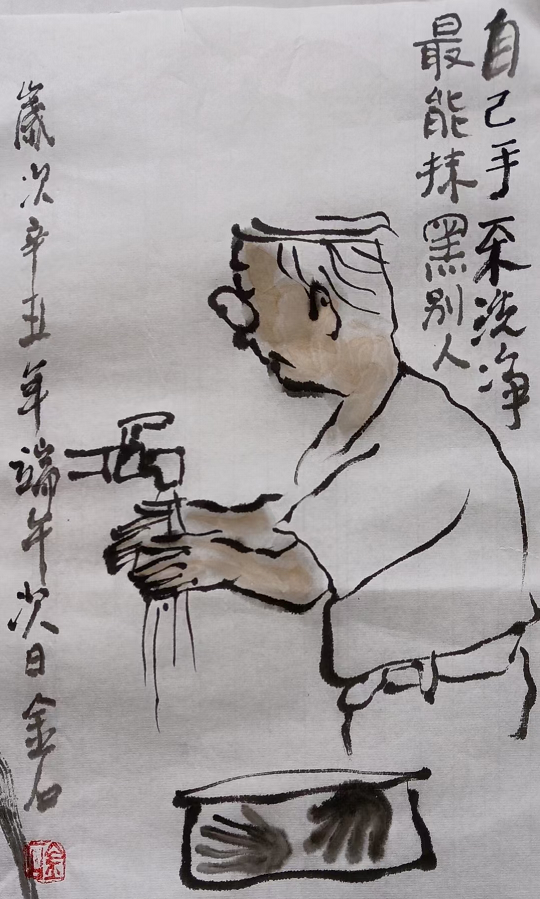 自己手未洗净
最能抹黑别人
歲次辛丑年端午次日金石